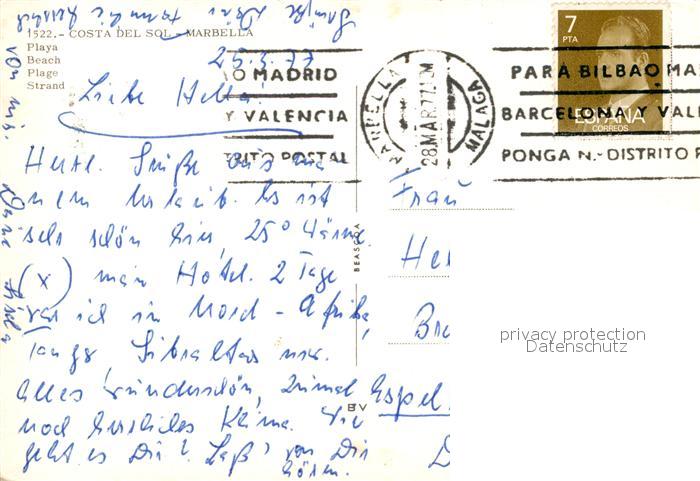 Grüße Deine Familie herzlich
1522.- COSTA DEL SOL - MARBELLA
Playa
Beach
Plage
Strand
25.3.77
Liebe Hella!
Herzl. Grüße aus mei-
nem Urlaub. Es ist
sehr schön hier, 25° Wärme.
(x) mein Hotel. 2 Tage
war ich in Nord-Afrika,
Tanger, Gibraltar usw.
Alles wunderschön, zumal
noch herrliches Klima. Wie
geht es Dir? Laß' von Dir
hören.
von mir. Deine
BEASCOA
BV
O MADRID
Y VALENCIA
TRITO POSTAL
MARBELLA
28 MAR 77
MALAGA
PARA BILBAO, MA
BARCELONA Y VALE
PONGA N.- DISTRITO P
7
PTA
ESPAÑA
CORREOS
Frau
He
Br
Espel
D
privacy protection
Datenschutz